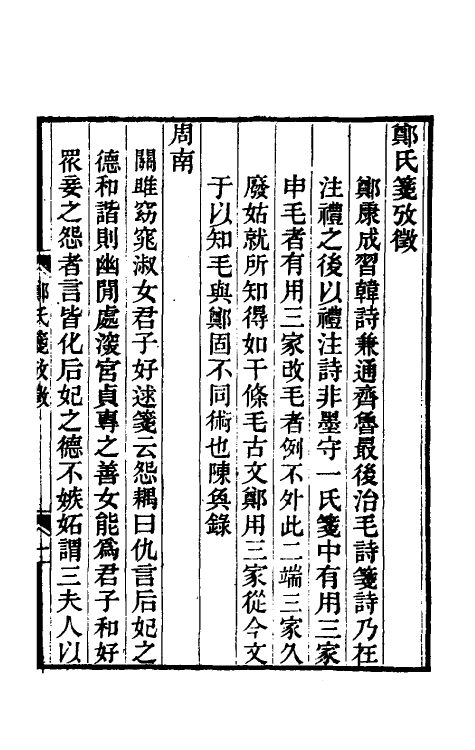 鄭氏箋攷徵
鄭康成習韓詩兼通齊魯最後治毛詩箋詩乃在
注禮之後以禮注詩非墨守一氏箋中有用三家
申毛者有用三家改毛者例不外此二端三家久
廢姑就所知得如干條毛古文鄭用三家從今文
于以知毛與鄭固不同術也陳奐錄
周南
關雎窈窕淑女君子好逑箋云怨耦曰仇言后妃之
德和諧則幽閒處深宮貞專之善女能爲君子和好
眾妾之怨者言皆化后妃之德不嫉妬謂三夫人以
鄭氏箋攷徵
一